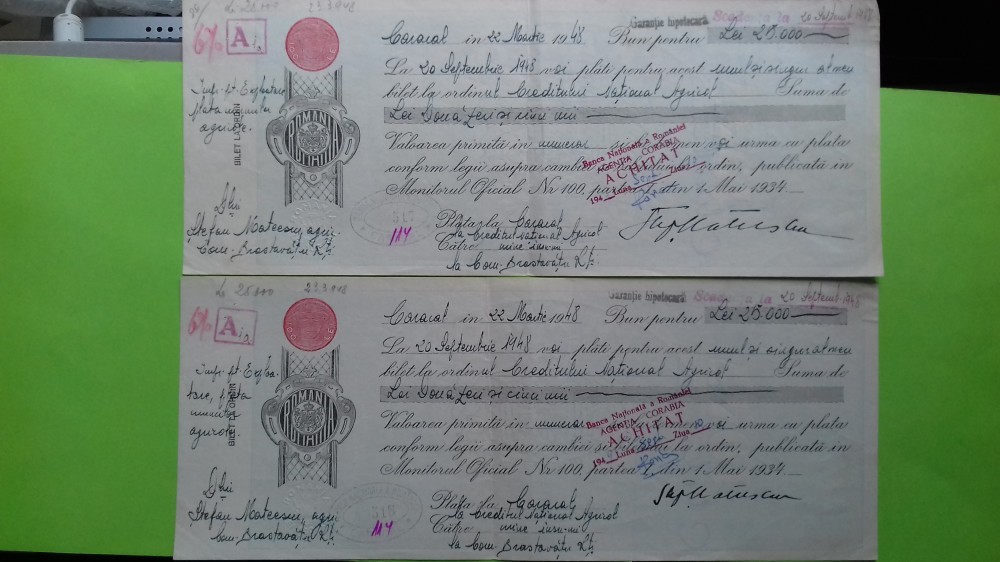 Lei 25000 23.3.948
Garanție hipotecară Scadența la 20 Septemb 1948
6% A
Caracal in 22 Martie 1948 Bun pentru Lei 25.000
La 20 Septembrie 1948 voi plăti pentru acest unul si singur al meu
bilet la ordinul Creditului Național Agricol Suma de
Lei Două zeci si cinci mii
Valoarea primită in numerar voi urma cu plata
conform legii asupra cambiei la ordin, publicată in
Monitorul Oficial Nr 100, partea din 1 Mai 1934
Banca Națională a României
AGENȚIA CORABIA
ACHITAT
194 Luna Sept Ziua
BILET LA ORDIN
ROMANIA
agricole.
Ștefan Mateescu, agri.
Com. Brastavățu
Plata la Caracal
la Creditul Național Agricol
Către mine insumi
la Com. Brastavățu
317
114
Lei 25000 23.3.948
Garanție hipotecară Scadența la 20 Septemb 1948
6% A
Caracal in 22 Martie 1948 Bun pentru Lei 25.000
La 20 Septembrie 1948 voi plăti pentru acest unul si singur al meu
bilet la ordinul Creditului Național Agricol Suma de
Lei Două zeci si cinci mii
Valoarea primită in numerar voi urma cu plata
conform legii asupra cambiei si biletului la ordin, publicată in
Monitorul Oficial Nr 100, partea I, din 1 Mai 1934
Banca Națională a României
AGENȚIA CORABIA
ACHITAT
194 Luna Sept Ziua
BILET LA ORDIN
ROMANIA
Ștefan Mateescu, agri.
Com. Brastavățu
Plata la Caracal
la Creditul Național Agricol
Către mine insumi
la Com. Brastavățu
318
114